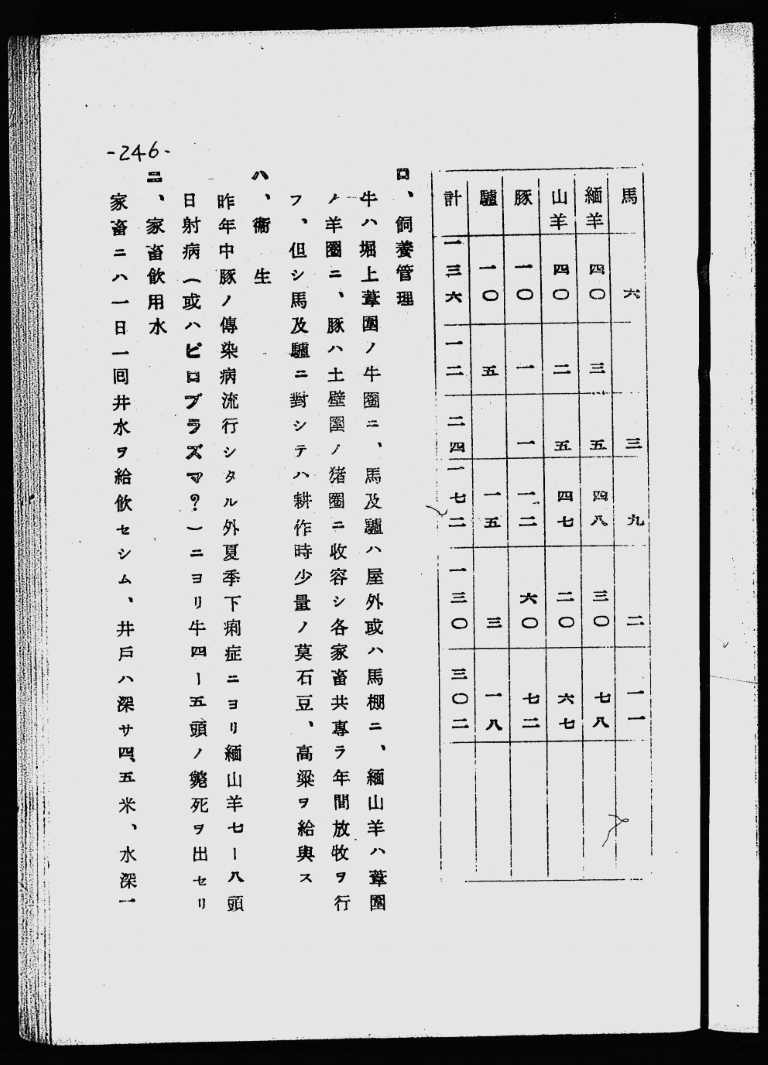 馬 六 三 九 二 一一
緬羊 四〇 三 五 四八 三〇 七八
山羊 四〇 二 五 四七 二〇 六七
豚 一〇 一 一 一二 六〇 七二
驢 一〇 五 一五 三 一八
計 一三六 一二 二四 一七二 一三〇 三〇二
ロ、飼養管理
牛ハ堀上葦圍ノ牛圈ニ、馬及驢ハ屋外或ハ馬棚ニ、緬山羊ハ葦圍
ノ羊圈ニ、豚ハ土壁圍ノ猪圈ニ收容シ各家畜共專ラ年間放牧ヲ行
フ、但シ馬及驢ニ對シテハ耕作時少量ノ莫石豆、高粱ヲ給與ス
ハ、衞生
昨年中豚ノ傳染病流行シタル外夏季下痢症ニヨリ緬山羊七ー八頭
日射病(或ハピロプラズマ?)ニヨリ牛四ー五頭ノ斃死ヲ出セリ
ニ、家畜飲用水
家畜ニハ一日一囘井水ヲ給飲セシム、井戸ハ深サ四、五米、水深一
-246-